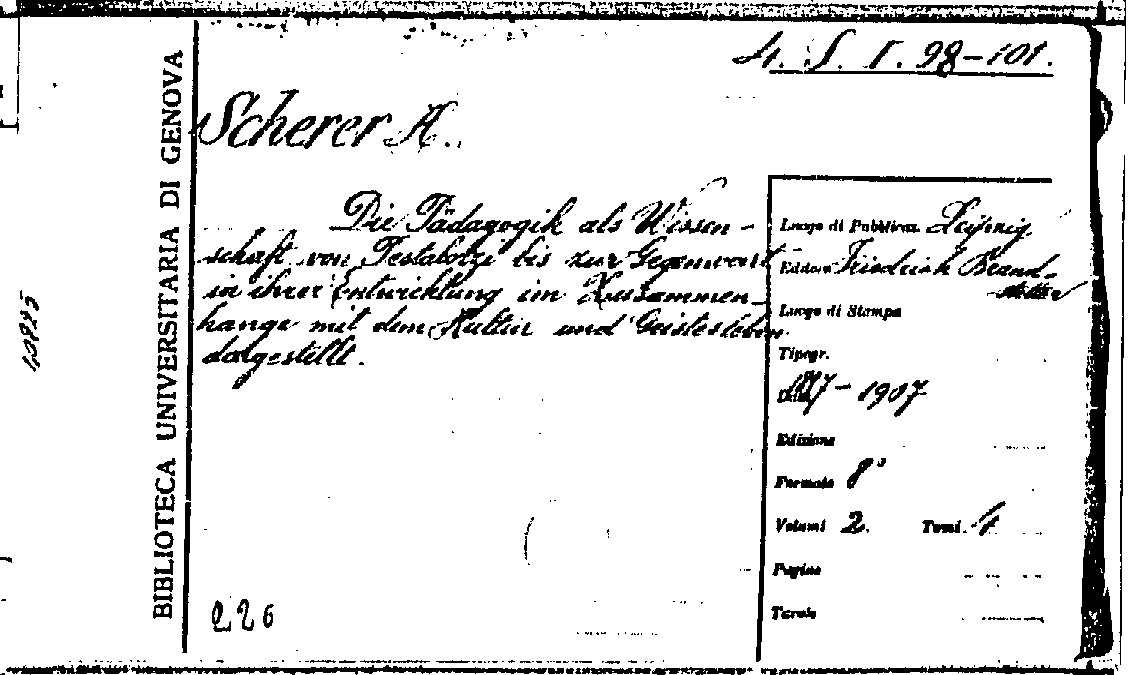 4. S. I. 98-101.
Scherer A.
Die Pädagogik als Wissen-
schaft von Pestalotzi bis zur Gegenwart
in ihrer Entwicklung im Zusammen-
hange mit dem Kultur und Geistesleben
dargestellt.
226
BIBLIOTECA UNIVERSITARIA DI GENOVA
Luogo di Pubblicaz. Leipzig
Editore Friedrich Brand-
stetter
Luogo di Stampa
Tipogr.
- 1907
Edizione
Formato 8°
Volumi 2. Tomi. 4
Pagine
Tavole